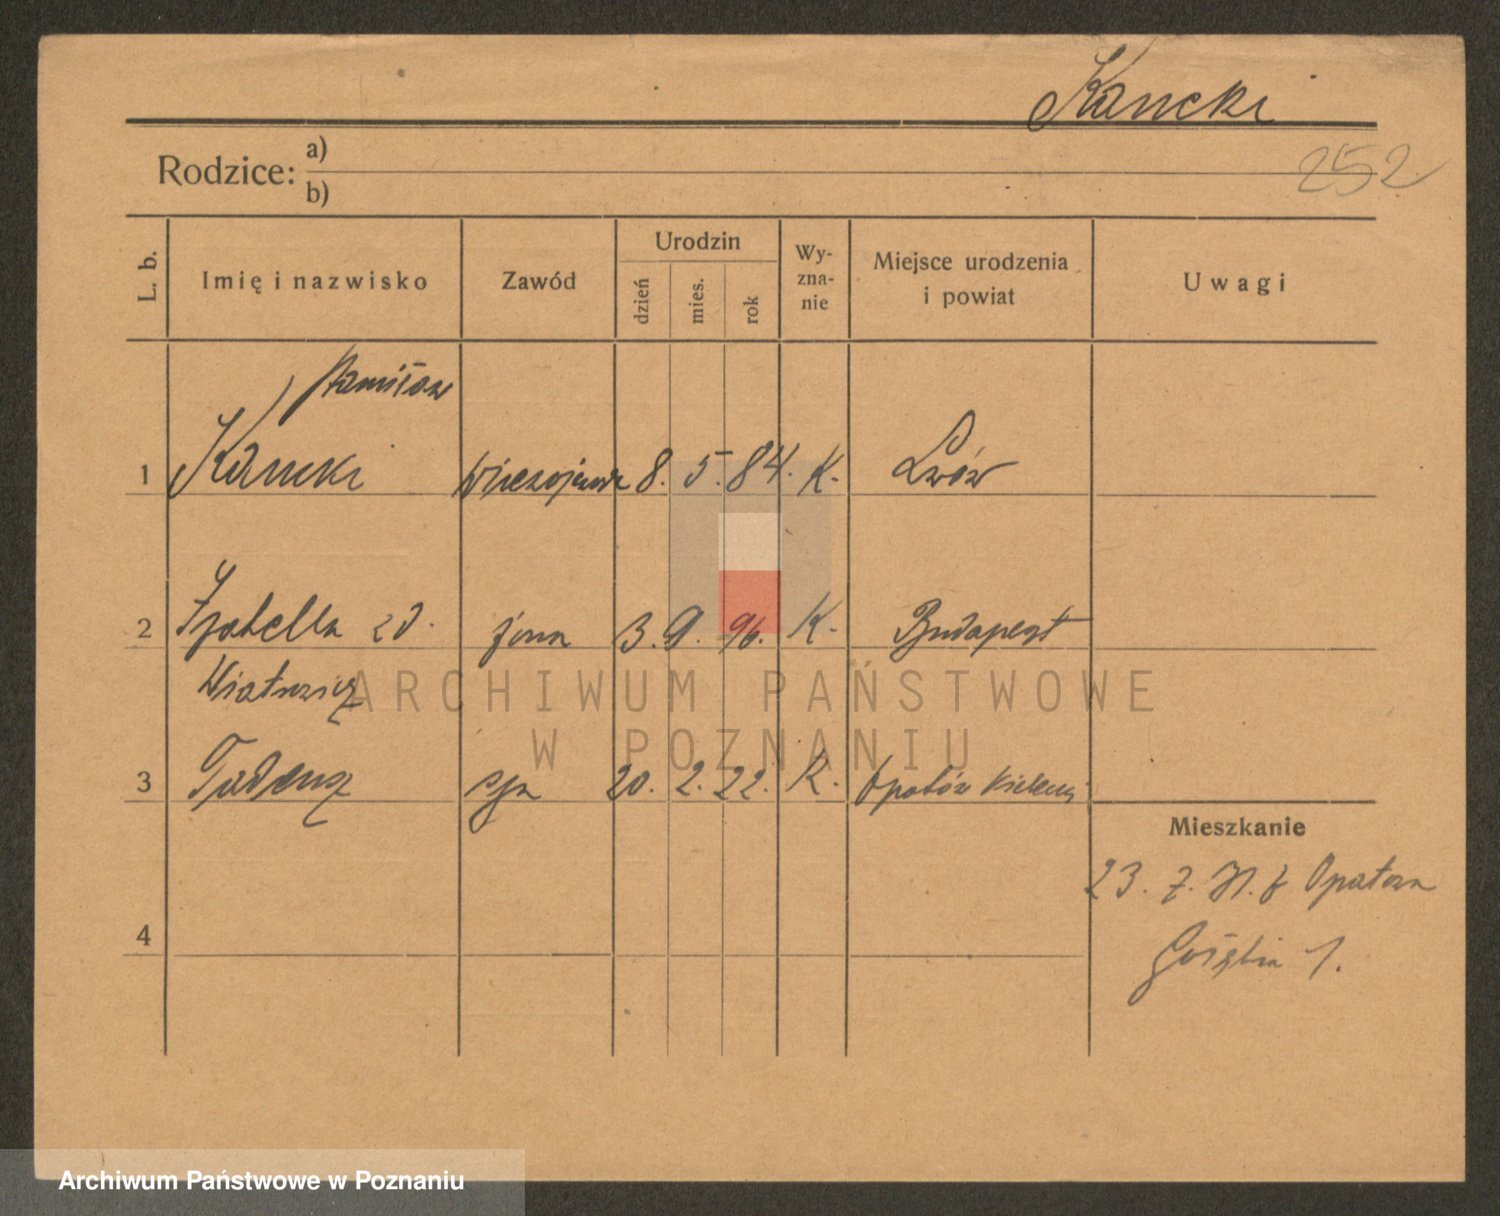 Kancki
252
Rodzice: a)
b)
L. b.
Imię i nazwisko
Zawód
Urodzin
dzień
mies.
rok
Wy-
zna-
nie
Miejsce urodzenia
i powiat
Uwagi
Stanisław
1 Kancki 8. 5. 84. K. Lwów
2 Izabella zd. żona 3. 9. 96. K. Budapest
3 Tadeusz syn 20. 2. 22. K. Opatów
Mieszkanie
23. Opatowa
4
Gołębia 1.
ARCHIWUM PAŃSTWOWE
W POZNANIU
Archiwum Państwowe w Poznaniu